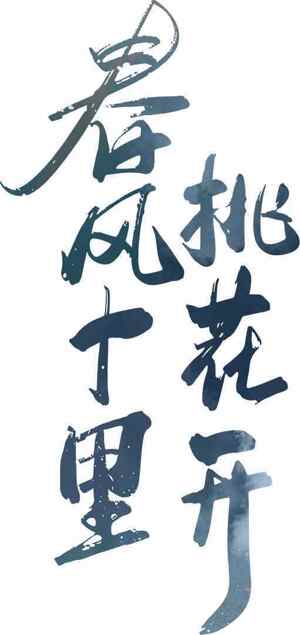 春风十里
桃花开